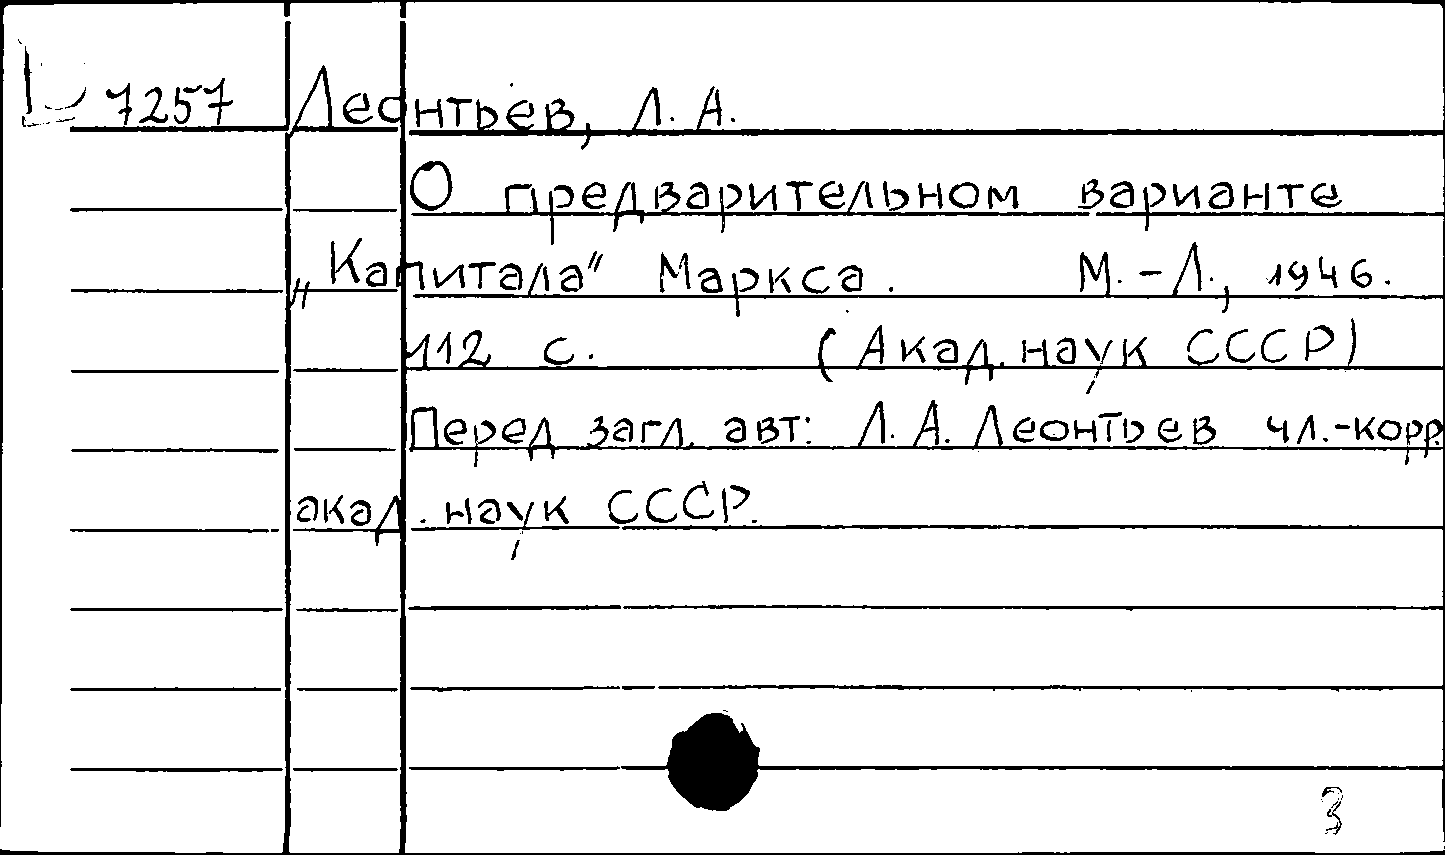 7257 Леонтьев, Л. А.
О предварительном варианте
„Капитала“ Маркса. М.-Л., 1946.
112 с. (Акад. наук СССР)
Перед загл. авт: Л. А. Леонтьев чл.-корр.
акад. наук СССР.
3